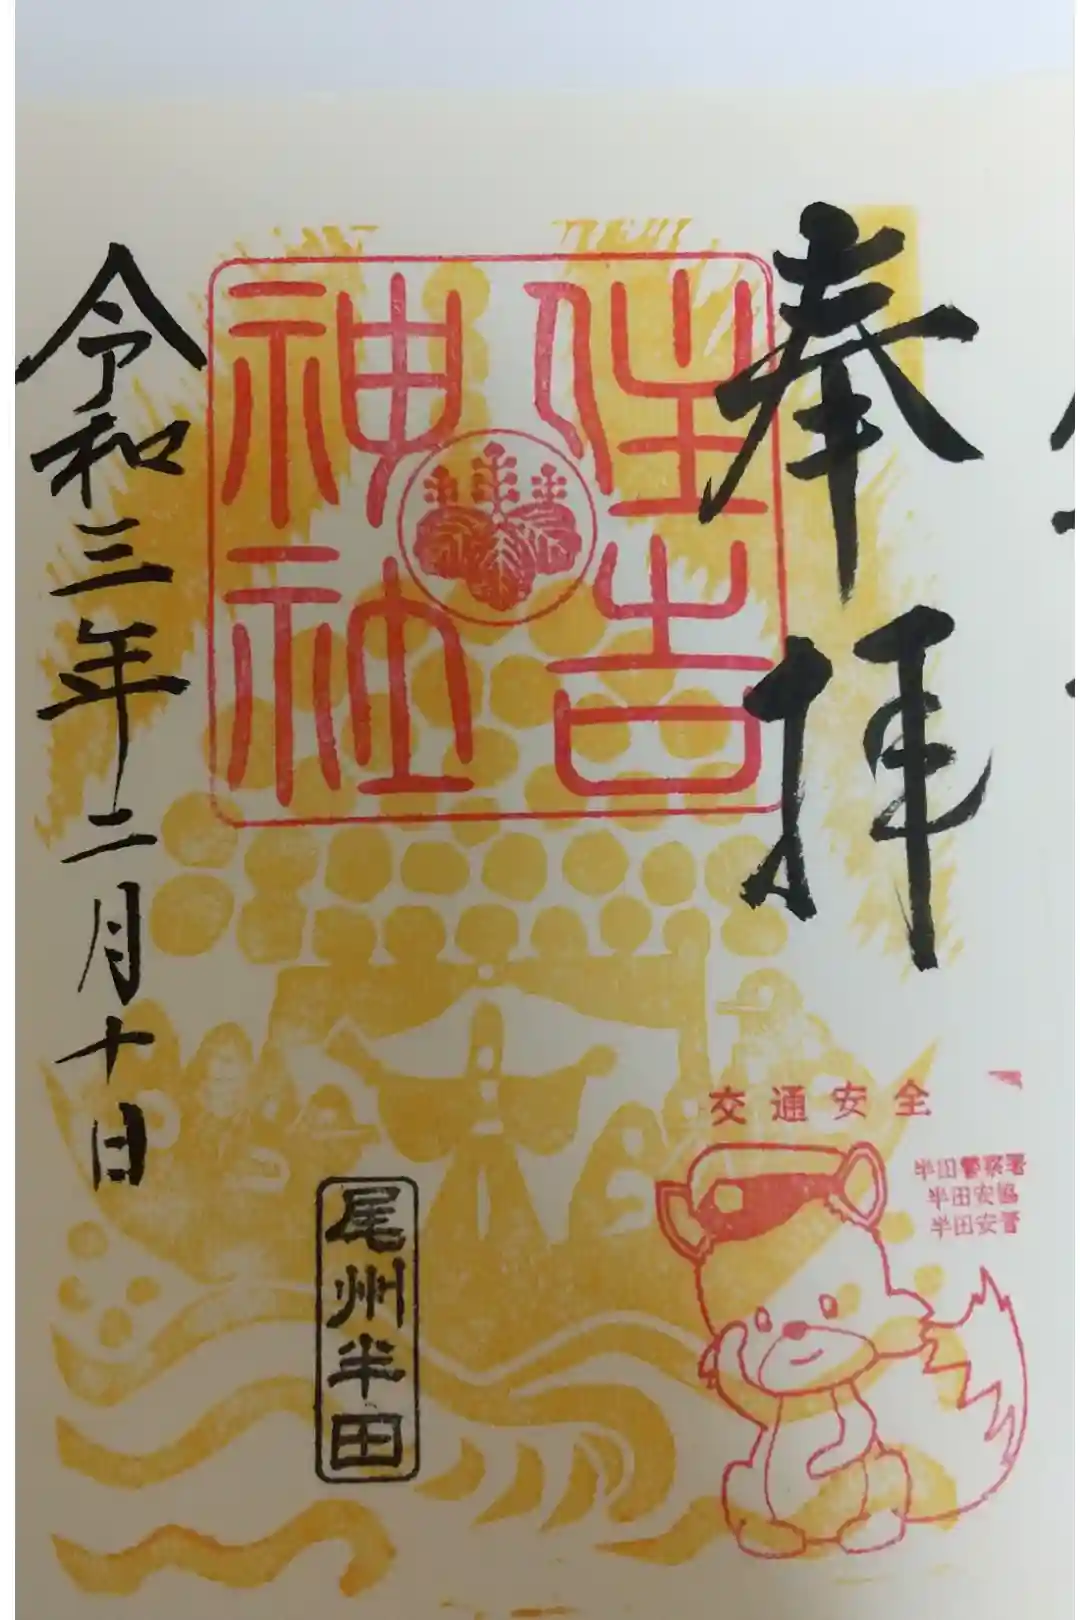 奉拝
住吉
神社
令和三年二月十日
尾州半田
交通安全
半田警察署
半田安協